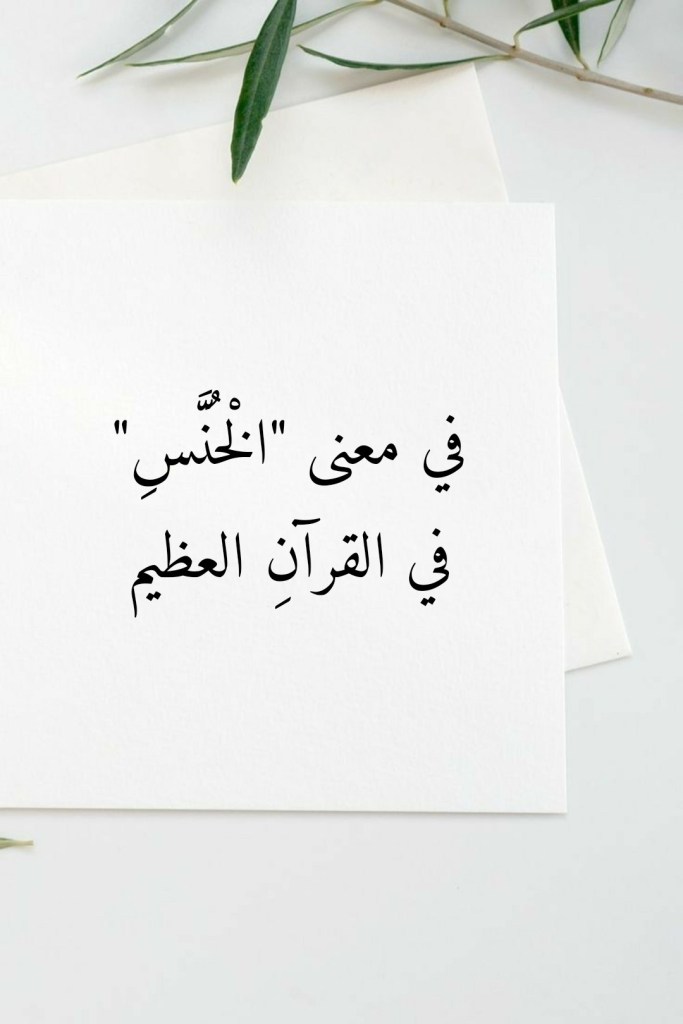 في معنى "الْخُنَّسِ"
في القرآنِ العظيم